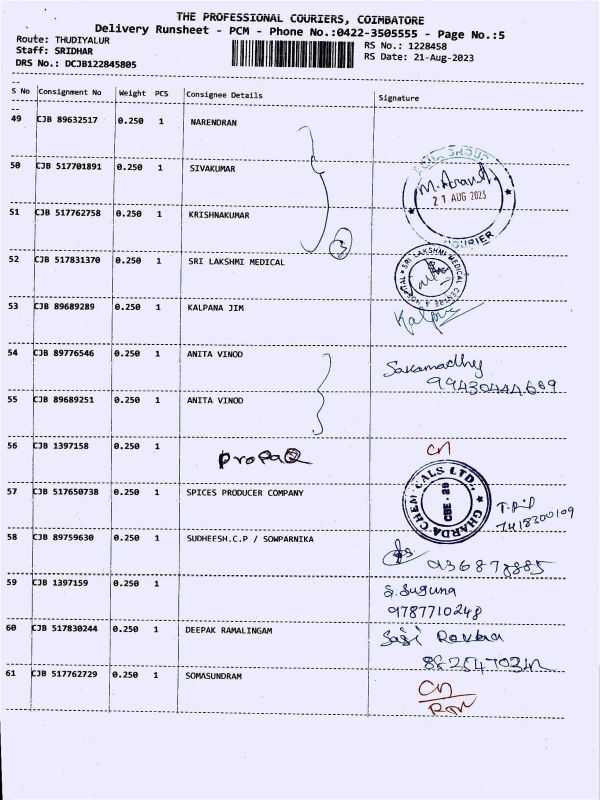 THE PROFESSIONAL COURIERS, COIMBATORE
Delivery Runsheet - PCM - Phone No.:0422-3505555 - Page No.:5
Route: THUDIYALUR
RS No.: 1228458
Staff: SRIDHAR
RS Date: 21-Aug-2023
DRS No.: DCJB122845805
S No Consignment No Weight PCS Consignee Details Signature
49 CJB 89632517 0.250 1 NARENDRAN
50 CJB 517701891 0.250 1 SIVAKUMAR
21 AUG 2023
51 CJB 517762758 0.250 1 KRISHNAKUMAR
COURIER
3
52 CJB 517831370 0.250 1 SRI LAKSHMI MEDICAL
SRI LAKSHMI MEDICAL CENTRE & HOSPITAL
53 CJB 89689289 0.250 1 KALPANA JIM
Kalpana
54 CJB 89776546 0.250 1 ANITA VINOD
55 CJB 89689251 0.250 1 ANITA VINOD
56 CJB 1397158 0.250 1
CN
57 CJB 517650738 0.250 1 SPICES PRODUCER COMPANY
GHARDA CHEMICALS LTD.,
CBE - 29
58 CJB 89759630 0.250 1 SUDHEESH.C.P / SOWPARNIKA
59 CJB 1397159 0.250 1
S. Suguna
9787710248
60 CJB 517830244 0.250 1 DEEPAK RAMALINGAM
61 CJB 517762729 0.250 1 SOMASUNDRAM
CN